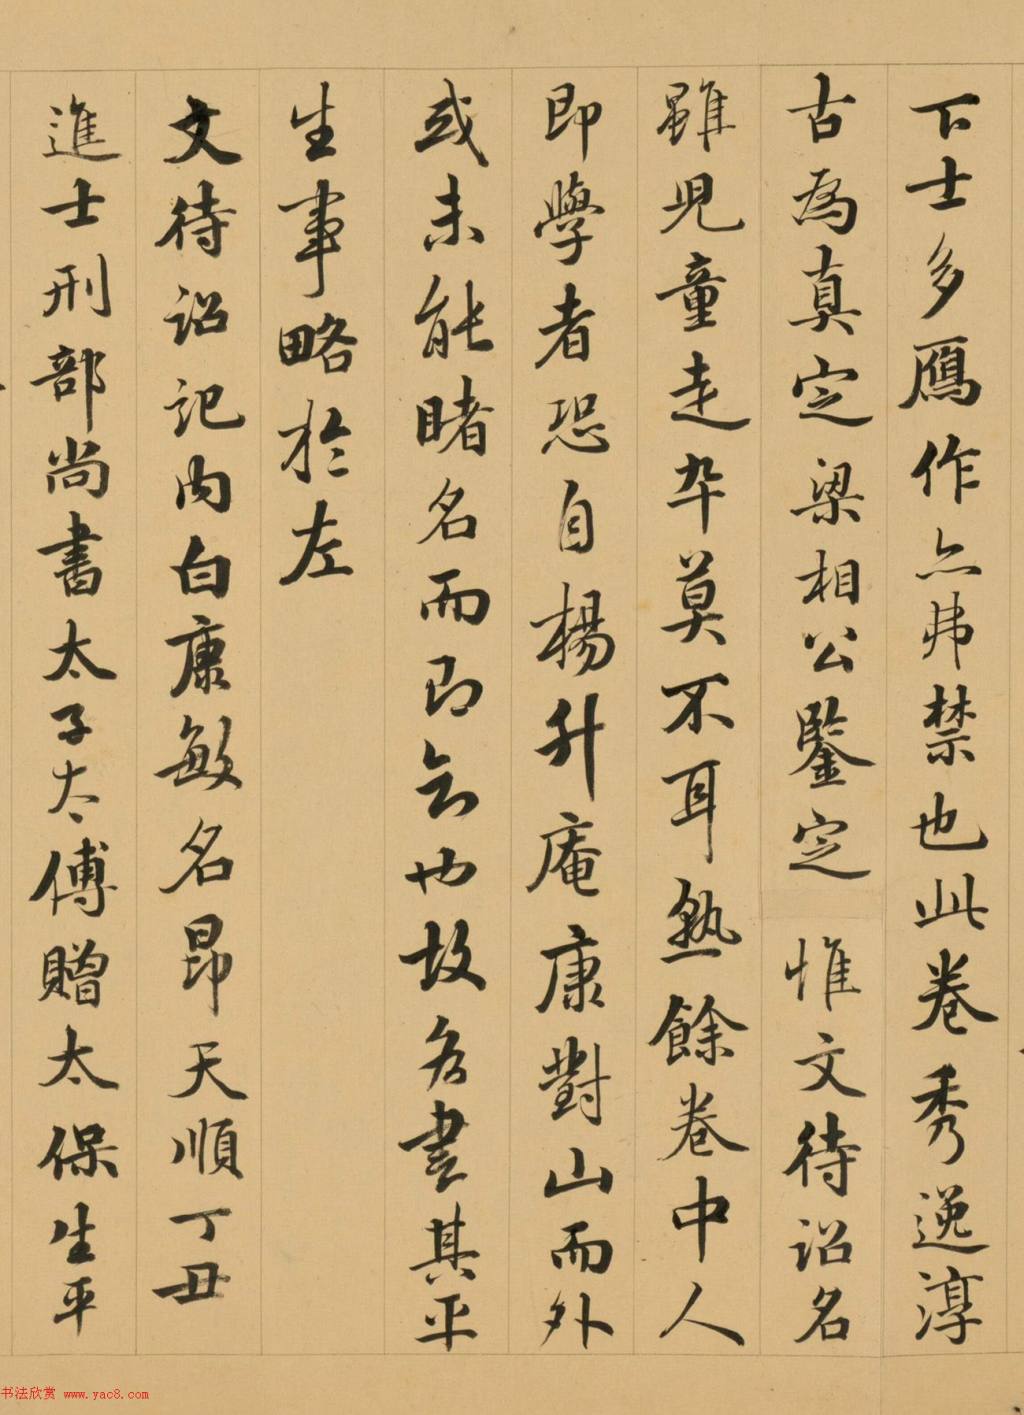 下士多贋作亦弗禁也此卷秀逸淳
古為真定梁相公鑒定惟文待詔名
雖兒童走卒莫不耳熟餘卷中人
即學者恐自楊升庵康對山而外
或未能睹名而即会也故為書其平
生事略於左
文待詔記內白康敏名昂天順丁丑
進士刑部尚書太子太傅贈太保生平
书法欣赏 www.yac8.com